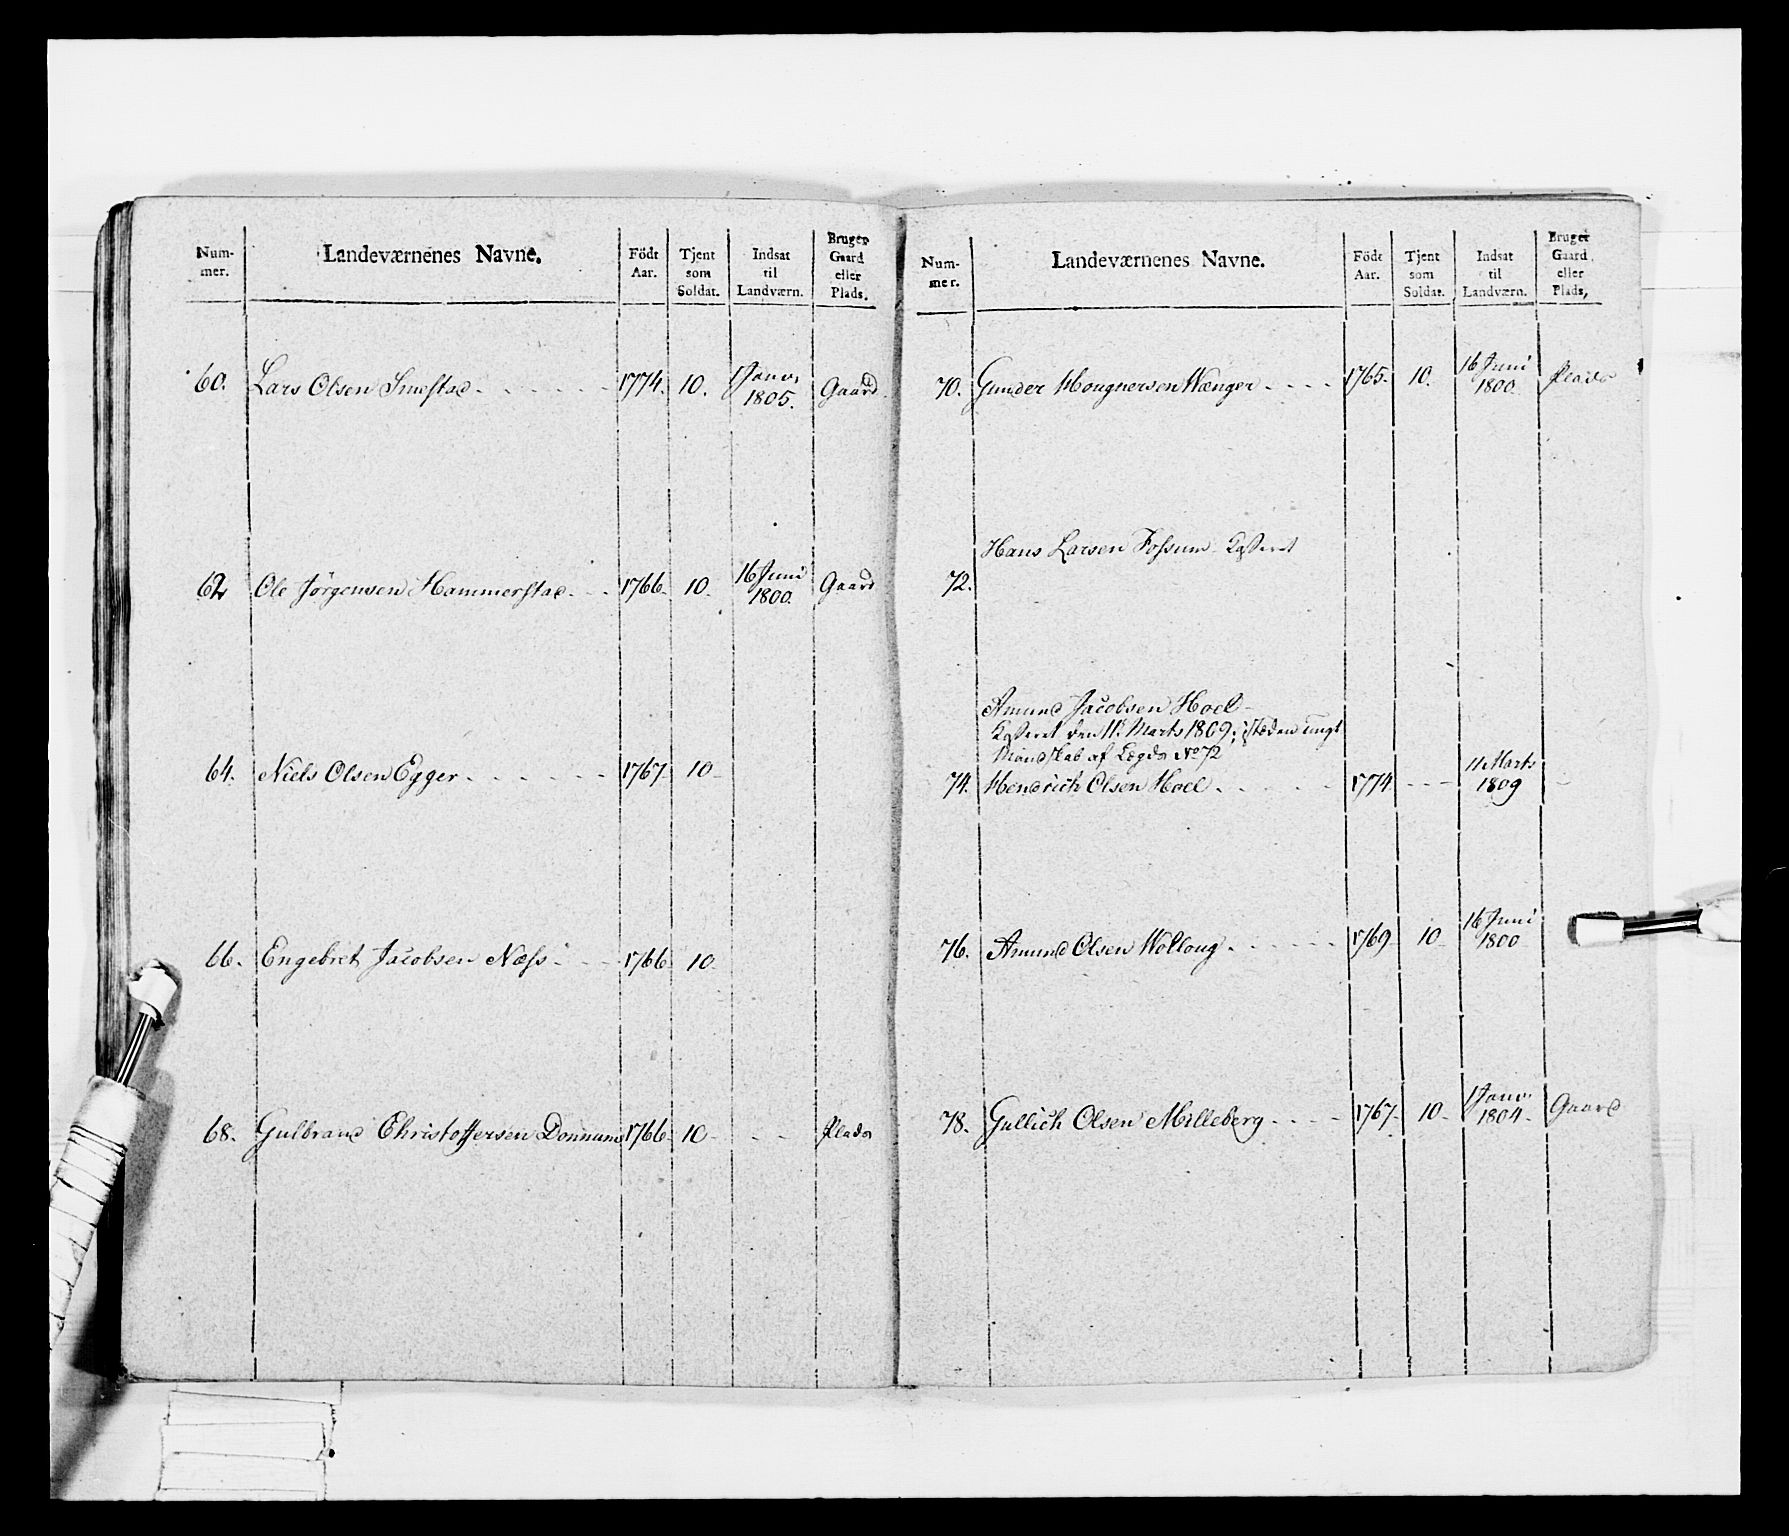 Num-
mer.
Landeværnenes Navne.
Födt
Aar.
Tjent
som
Soldat.
Indsat
til
Landværn.
Bruger
Gaard
eller
Plads.
60. Lars Olsen Smestad 1774. 10. 1 Janv. 1805. Gaard.
62 Ole Jørgensen Hammerstad 1766. 10. 16 Juni 1800. Gaard
64. Niels Olsen Egger 1767. 10
66. Engebret Jacobsen Næss 1766. 10.
68. Gulbrand Christoffersen Donnum 1766. 10 - - Plads
Num-
mer.
Landeværnenes Navne.
Födt
Aar.
Tjent
som
Soldat.
Indsat
til
Landværn.
Bruger
Gaard
eller
Plads,
70. Gunder Mougnersen Wænger 1765. 10. 16 Juni 1800. Plads
Hans Larsen Fossum Kasseret
72.
Amund Jacobsen Hoel
Kasseret den 11te Marts 1809; istæden ungt
Mandskab af Lægds No 72
74. Hendrich Olsen Hoel 1774 - - - 11 Marts 1809
76. Amund Olsen Wolloug 1769 10 16 Juni 1800
78. Gullich Olsen Milleberg 1767. 10 1 Janv. 1804. Gaard